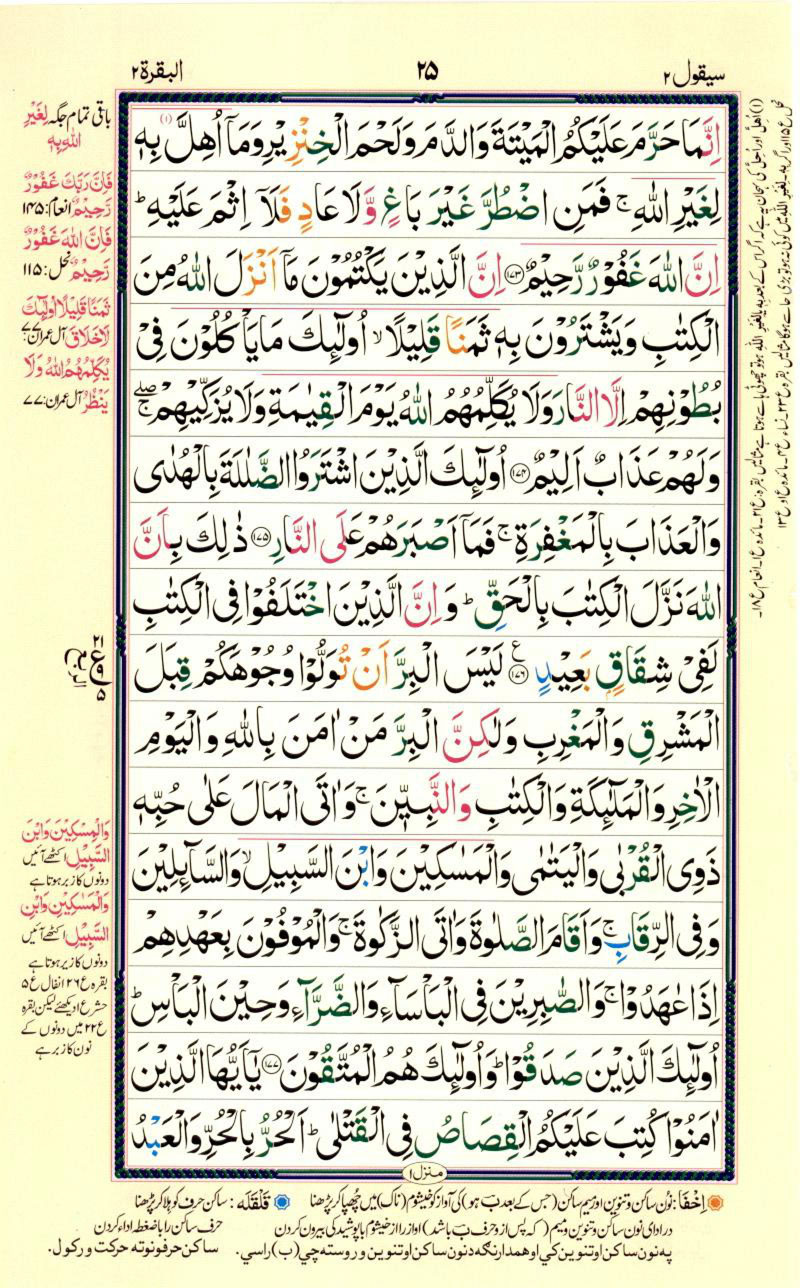 سيقول ٢
٢٥
البقرة ٢
اِنَّمَا حَرَّمَ عَلَيْكُمُ الْمَيْتَةَ وَالدَّمَ وَلَحْمَ الْخِنْزِيْرِ وَمَاۤ اُهِلَّ بِهٖ (١)
لِغَيْرِ اللّٰهِ ۚ فَمَنِ اضْطُرَّ غَيْرَ بَاغٍ وَّلَا عَادٍ فَلَاۤ اِثْمَ عَلَيْهِ ؕ
اِنَّ اللّٰهَ غَفُوْرٌ رَّحِيْمٌ ﴿١٧٣﴾ اِنَّ الَّذِيْنَ يَكْتُمُوْنَ مَاۤ اَنْزَلَ اللّٰهُ مِنَ
الْكِتٰبِ وَيَشْتَرُوْنَ بِهٖ ثَمَنًا قَلِيْلًا ۙ اُولٰٓئِكَ مَا يَاْكُلُوْنَ فِيْ
بُطُوْنِهِمْ اِلَّا النَّارَ وَلَا يُكَلِّمُهُمُ اللّٰهُ يَوْمَ الْقِيٰمَةِ وَلَا يُزَكِّيْهِمْ ۖۚ
وَلَهُمْ عَذَابٌ اَلِيْمٌ ﴿١٧٤﴾ اُولٰٓئِكَ الَّذِيْنَ اشْتَرَوُا الضَّلٰلَةَ بِالْهُدٰى
وَالْعَذَابَ بِالْمَغْفِرَةِ ۚ فَمَاۤ اَصْبَرَهُمْ عَلَى النَّارِ ﴿١٧٥﴾ ذٰلِكَ بِاَنَّ
اللّٰهَ نَزَّلَ الْكِتٰبَ بِالْحَقِّ ؕ وَاِنَّ الَّذِيْنَ اخْتَلَفُوْا فِى الْكِتٰبِ
لَفِيْ شِقَاقٍۭ بَعِيْدٍ ﴿١٧٦﴾ ع لَيْسَ الْبِرَّ اَنْ تُوَلُّوْا وُجُوْهَكُمْ قِبَلَ
الْمَشْرِقِ وَالْمَغْرِبِ وَلٰكِنَّ الْبِرَّ مَنْ اٰمَنَ بِاللّٰهِ وَالْيَوْمِ
الْاٰخِرِ وَالْمَلٰٓئِكَةِ وَالْكِتٰبِ وَالنَّبِيّٖنَ ۚ وَاٰتَى الْمَالَ عَلٰى حُبِّهٖ
ذَوِى الْقُرْبٰى وَالْيَتٰمٰى وَالْمَسٰكِيْنَ وَابْنَ السَّبِيْلِ ۙ وَالسَّآئِلِيْنَ
وَفِى الرِّقَابِ ۚ وَاَقَامَ الصَّلٰوةَ وَاٰتَى الزَّكٰوةَ ۚ وَالْمُوْفُوْنَ بِعَهْدِهِمْ
اِذَا عٰهَدُوْا ۚ وَالصّٰبِرِيْنَ فِى الْبَاْسَآءِ وَالضَّرَّآءِ وَحِيْنَ الْبَاْسِ ؕ
اُولٰٓئِكَ الَّذِيْنَ صَدَقُوْا ؕ وَاُولٰٓئِكَ هُمُ الْمُتَّقُوْنَ ﴿١٧٧﴾ يٰۤاَيُّهَا الَّذِيْنَ
اٰمَنُوْا كُتِبَ عَلَيْكُمُ الْقِصَاصُ فِى الْقَتْلٰى ؕ اَلْحُرُّ بِالْحُرِّ وَالْعَبْدُ
منزل ١
باقی تمام جگہ لِغَيْرِ
اللّٰهِ بِهٖ
فَاِنَّ رَبَّكَ غَفُوْرٌ
رَّحِيْمٌ انعام: ١٤٥
فَاِنَّ اللّٰهَ غَفُوْرٌ
رَّحِيْمٌ نحل: ١١٥
ثَمَنًا قَلِيْلًا اُولٰٓئِكَ
لَا خَلَاقَ آل عمران: ٧٧
يُكَلِّمُهُمُ اللّٰهُ وَلَا
يَنْظُرُ آل عمران: ٧٧
٢١
ع
٥
وَالْمَسٰكِيْنَ وَابْنَ
السَّبِيْلِ اکٹھے آئیں
دونوں کا زبر ہوتا ہے
وَالْمَسٰكِيْنِ وَابْنِ
السَّبِيْلِ اکٹھے آئیں
دونوں کا زیر ہوتا ہے
بقرہ ع ٢٦ انفال ع ٥
حشر ع ا دیکھئے لیکن بقرہ
ع ٢٢ میں دونوں کے
نون کا زبر ہے
اِخْفَا: نون ساکن و تنوین اور میم ساکن (جس کے بعد ب ہو) کی آواز کو خیشوم (ناک) میں چھپا کر پڑھنا
قَلْقَلَه: ساکن حرف کو ہلا کر پڑھنا
در ادای نون ساکن و تنوین و میم (که پس از و حرف ب باشد) آواز را از خیشوم با پوشیدگی بیرون کردن
حرف ساکن را با ضغطه ادا کردن
په نون ساکن او تنوین کي او همدارنګه د نون ساکن او تنوین وروسته چي (ب) راسي.
ساکن حرفونو ته حرکت ورکول.